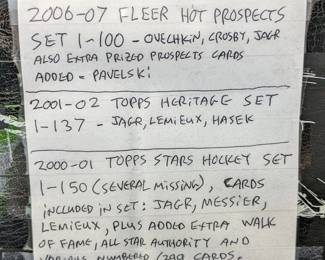 2006-07 FLEER HOT PROSPECTS
SET 1-100 - OVECHKIN, CROSBY, JAGR
ALSO EXTRA PRIZED PROSPECTS CARDS
ADDED = PAVELSKI
2001-02 TOPPS HERITAGE SET
1-137 - JAGR, LEMIEUX, HASEK
2000-01 TOPPS STARS HOCKEY SET
1-150 (SEVERAL MISSING), CARDS
INCLUDED IN SET: JAGR, MESSIER,
LEMIEUX, PLUS ADDED EXTRA WALK
OF FAME, ALL STAR AUTHORITY AND
VARIOUS NUMBERED /299 CARDS.